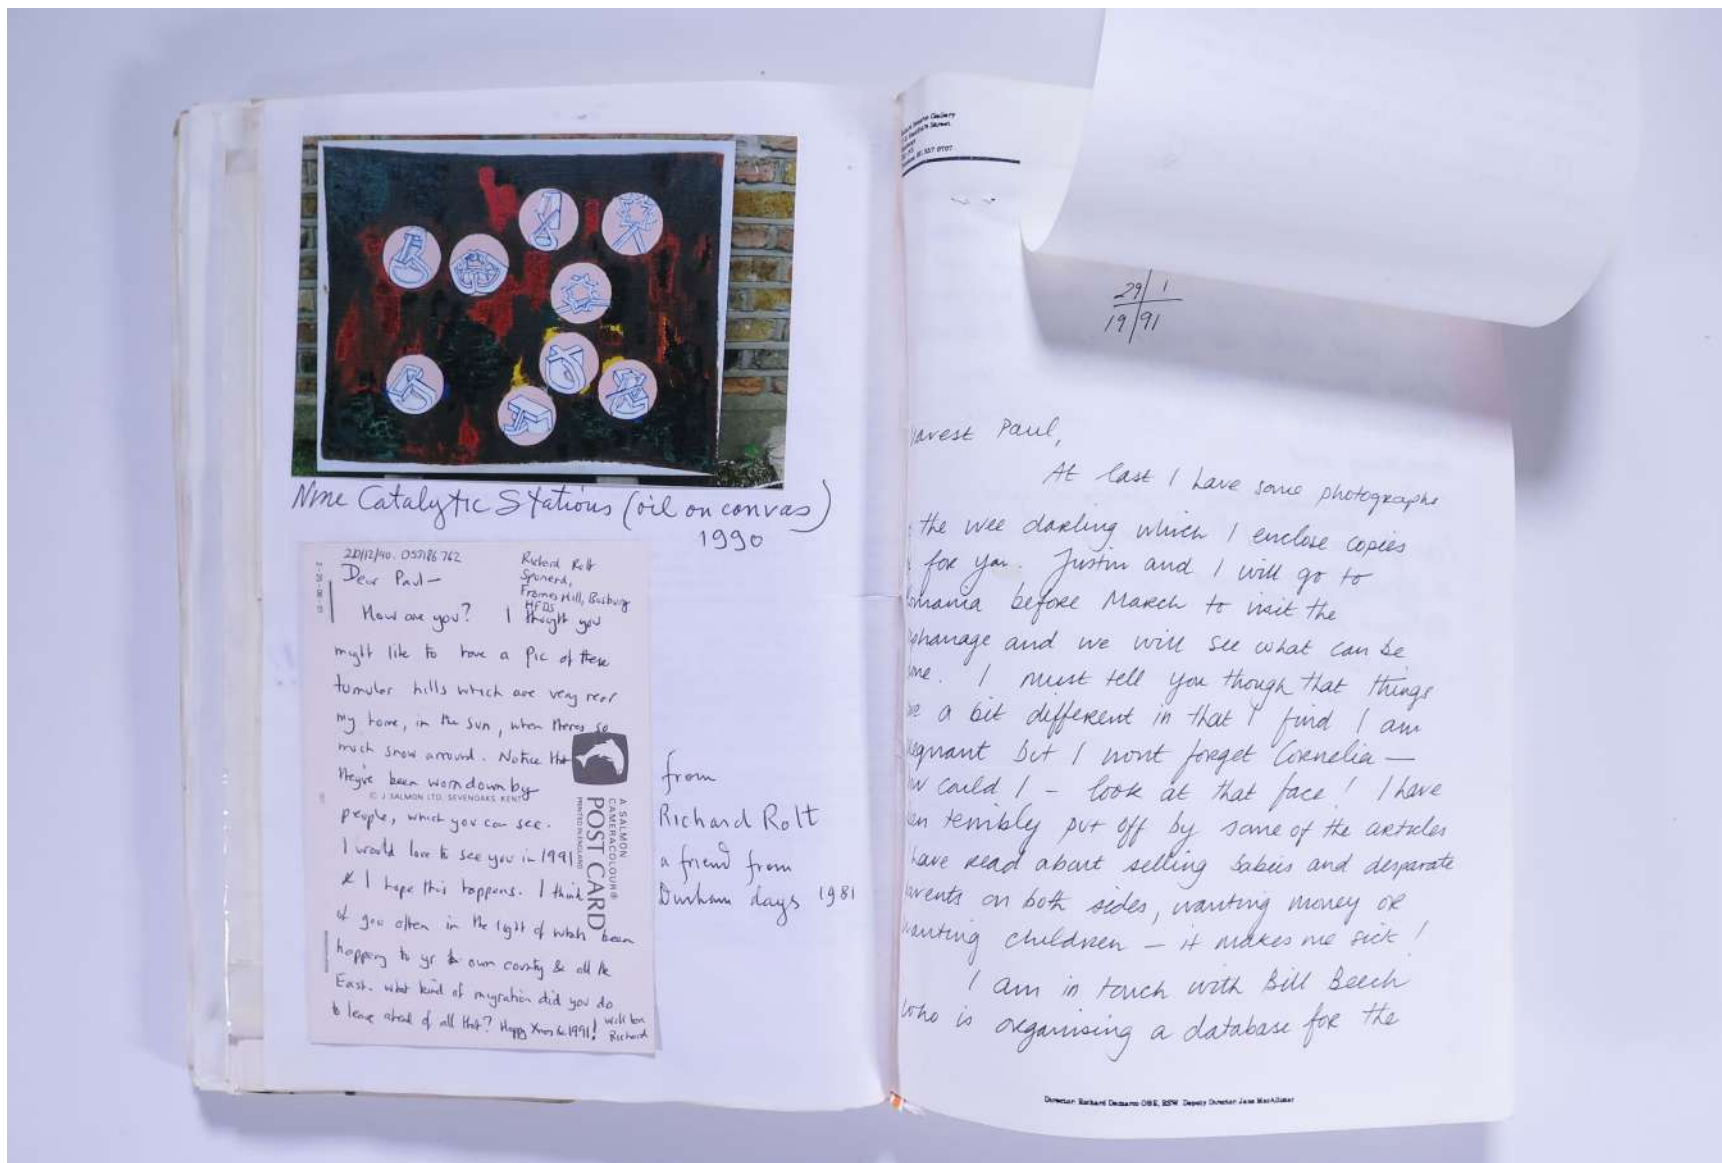 Nine Catalytic Stations (oil on convas)
1990
20/12/90.
Richard Rolt
Frames Hill,
HFDS
Dear Paul —
How are you? I thought you
might like to have a Pic of these
tumular hills which are very near
my home, in the sun, when theres so
much snow arround. Notice that
they've been worn down by
people, which you can see.
I would love to see you in 1991
& I hope this happens. I think
of you often in the light of whats been
happening to yr own country & all the
East. what kind of migration did you do
to leave ahead of all that? Happy Xmas & 1991!
Richard
© J. SALMON LTD. SEVENOAKS KENT
A SALMON
CAMERACOLOUR®
POST CARD
PRINTED IN ENGLAND
from
Richard Rolt
a friend from
Durham days 1981
Gallery
Street
557 0707
29/1
19/91
arest Paul,
At last I have some photographs
the wee darling which I enclose copies
for you. Justin and I will go to
omania before March to visit the
phanage and we will see what can be
ne. I must tell you though that things
a bit different in that I find I am
egnant but I wont forget Cornelia —
w could I – look at that face! I have
en terribly put off by some of the articles
have read about selling babies and desparate
arents on both sides, wanting money or
wanting children — it makes me sick!
I am in touch with Bill Beech
who is organising a database for the
Director: Richard Demarco OBE, RSW Deputy Director: Jane MacAllister